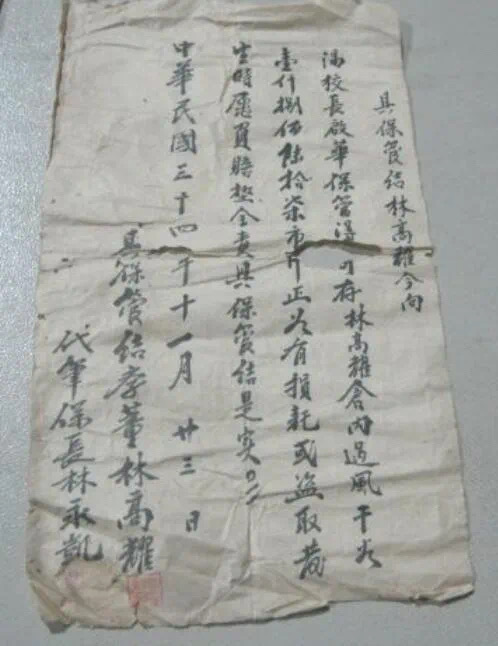 具保管結林高耀今向
馮校長啟華保管得曰存林高耀倉內過風干谷
壹仟捌佰陸拾柒市斤正如有損耗或盜取發
生時愿負賠墊全責具保管結是实
中華民國三十四年十一月廿三日
具保管結李董林高耀
代筆保長林永凱